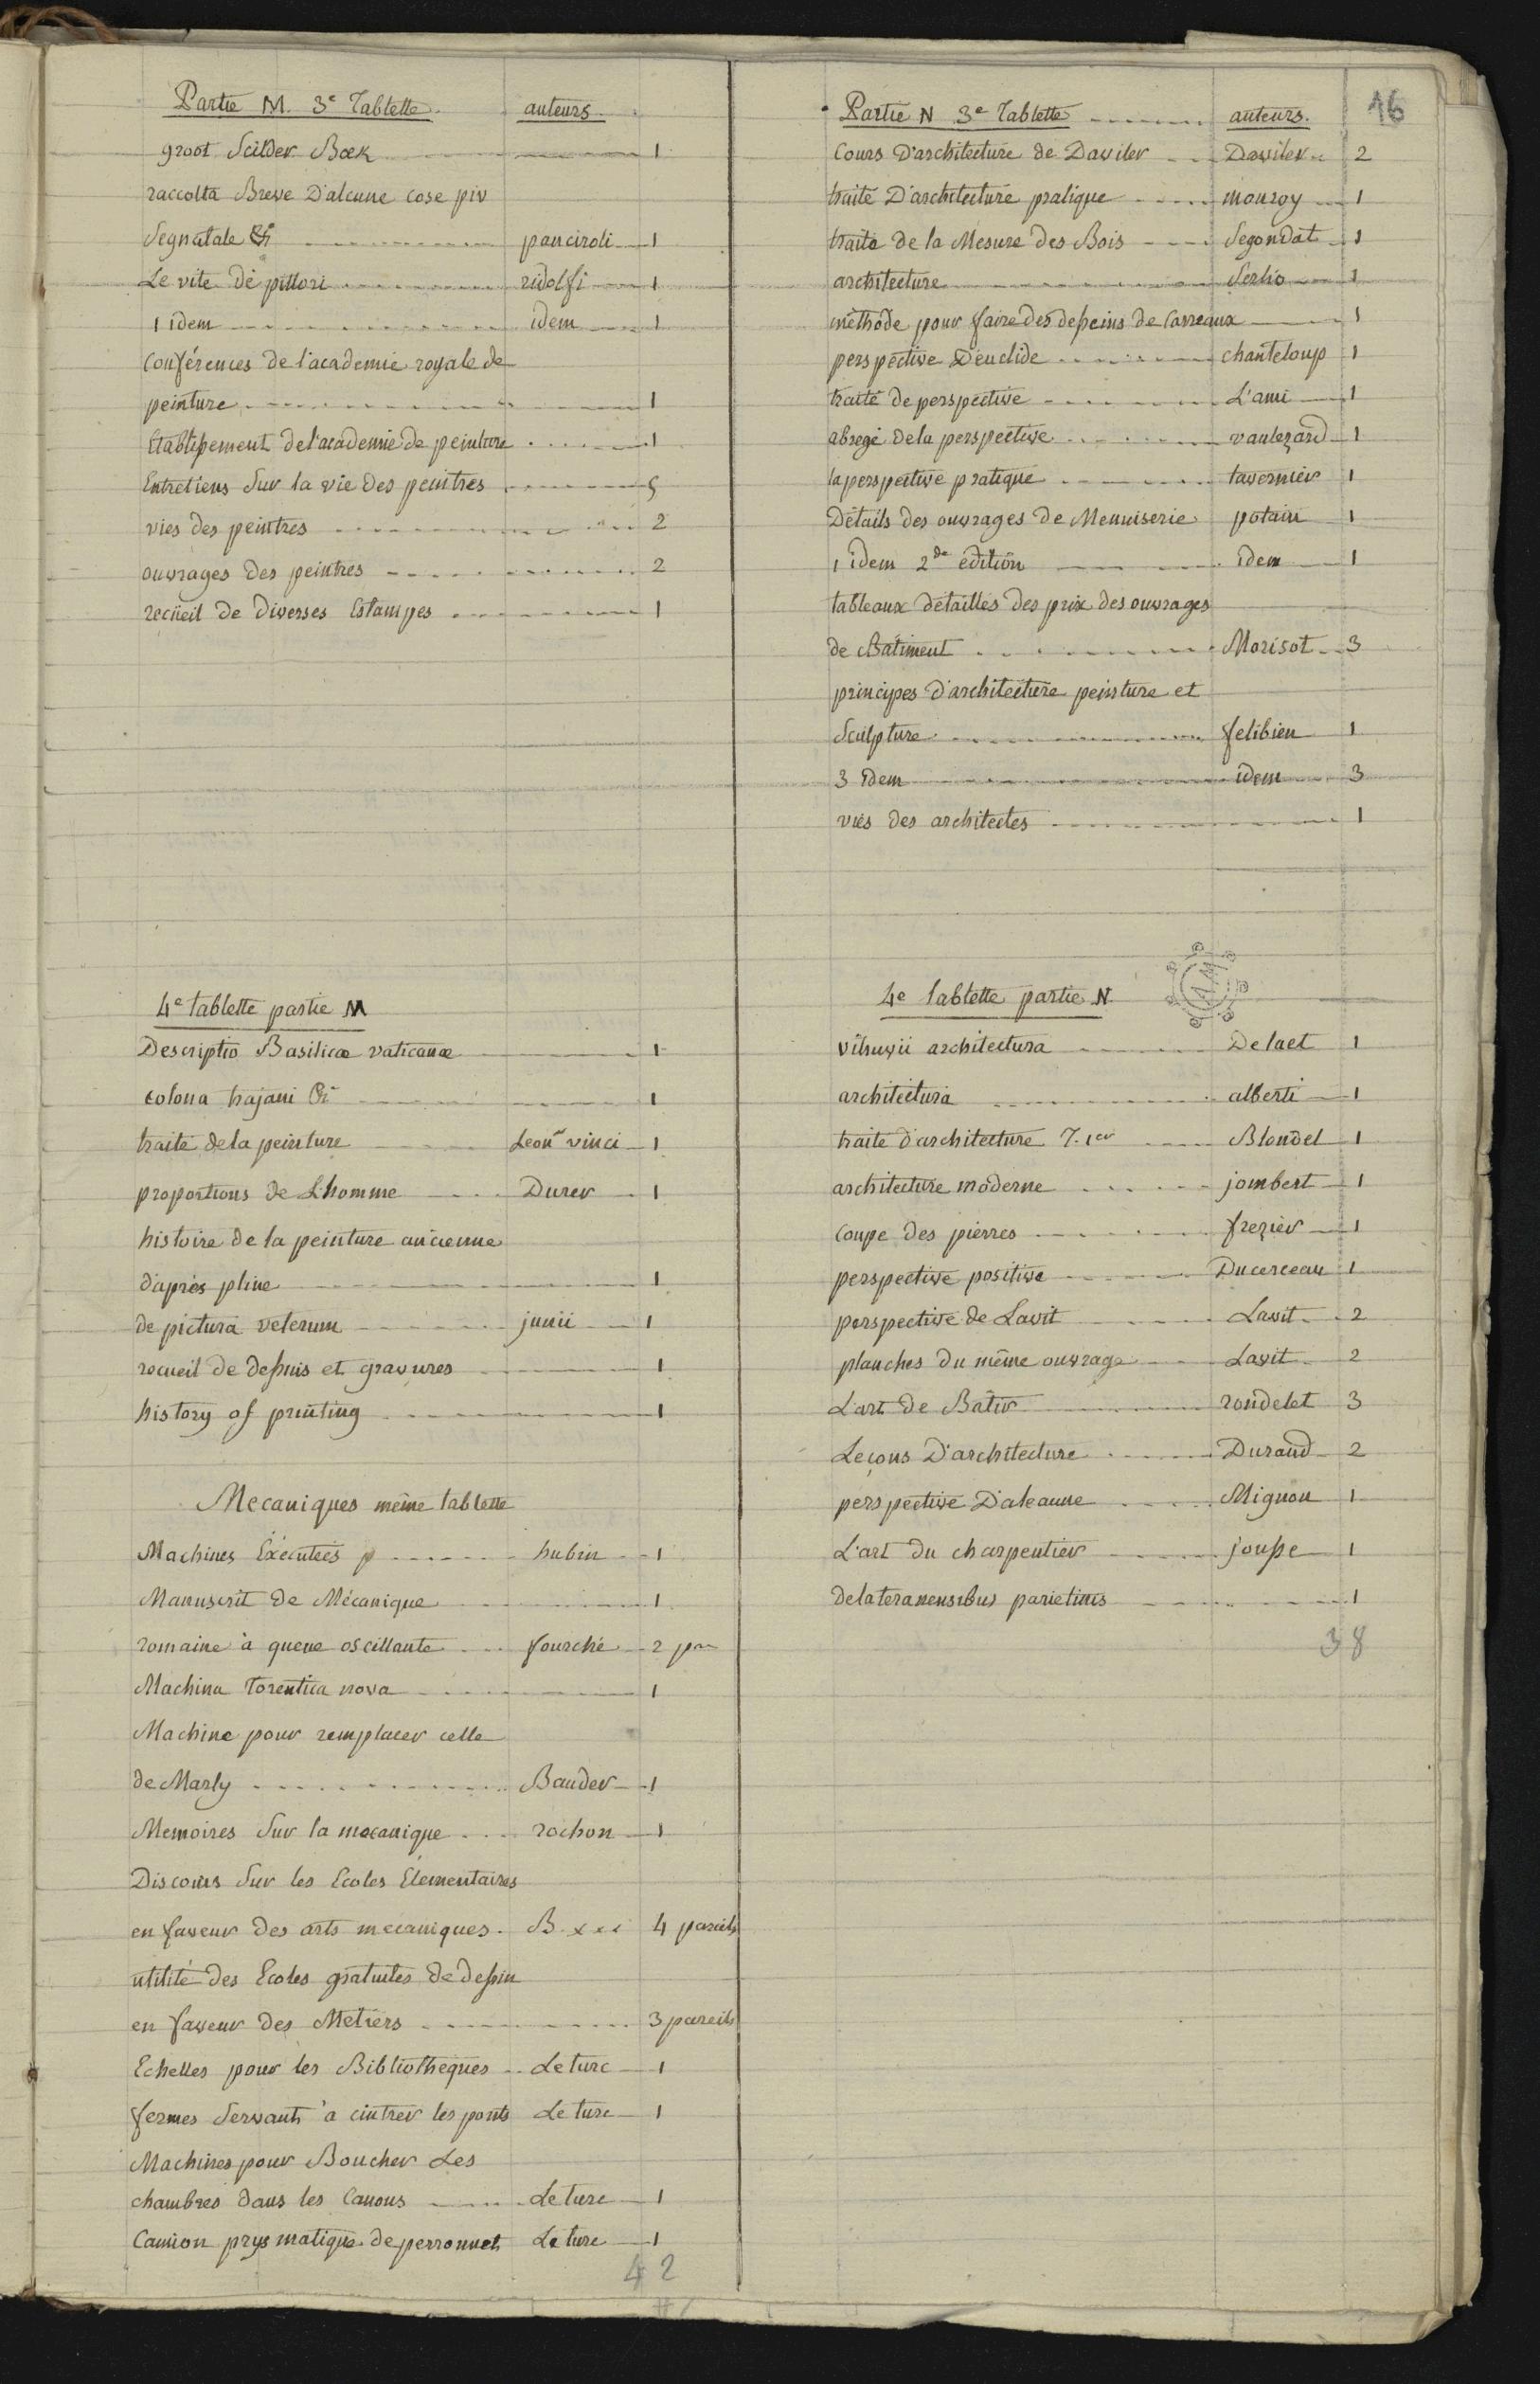 16
Partie M. 3e Tablette. auteurs.
groot Scilder Boek 1
raccolta Breve D'alcune cose piv
Segnatale &c panciroli 1
Le vite de pittori ridolfi 1
1 idem idem 1
Conférences de l'academie royale de
peinture 1
Etablissement de l'academie de peinture 1
Entretiens Sur la vie Des peintres 5
vies des peintres 2
ouvrages des peintres 2
recueil de Diverses Estampes 1
4e tablette partie M
Descriptio Basilicæ vaticanæ 1
colona trajani &c 1
traité de la peinture Leonard vinci 1
proportions de L'homme Durer 1
histoire de la peinture ancienne
d'après pline 1
de pictura veterum junii 1
recueil de dessins et gravures 1
history of printing 1
Mecaniques même tablette
Machines Exécutées p hubin 1
Manuscrit de Mécanique 1
romaine à queue oscillante fourché 2
Machina Torentica nova 1
Machine pour remplacer celle
de Marly Bander 1
Memoires Sur la mecanique rochon 1
Discours Sur les Ecoles Elementaires
en faveur des arts mecaniques. B. xxx 4 pareils
utilité des Ecoles gratuites de dessin
en faveur des Metiers 3 pareils
Echelles pour les Bibliotheques Le turc 1
fermes Servants à cintrer les ponts Le turc 1
Machines pour Boucher Les
chambres dans les Canons Le turc 1
Camion prysmatique de perronnet Le turc 1
42
Partie N 3e Tablette auteurs.
Cours D'architecture de Daviler Daviler 2
traité D'architecture pratique monroy 1
traité de la Mesure des Bois Segondat 1
architecture Serlio 1
méthode pour faire des dessins de Carreaux 1
perspective D'euclide chanteloup 1
traité de perspective L'ami 1
abregé de la perspective vaulezard 1
la perspective pratique tavernier 1
Détails des ouvrages de Menuiserie potain 1
1 idem 2de édition idem 1
tableaux détaillés des prix des ouvrages
de Bâtiment Morisot 3
principes d'architecture peinture et
Sculpture felibien 1
3 idem idem 3
vies des architectes 1
4e tablette partie N.
vitruvii architectura De laet 1
architectura alberti 1
traité d'architecture T. 1er Blondel 1
architecture moderne jombert 1
Coupe des pierres frezier 1
perspective positive Ducerceau 1
perspective de Lavit Lavit 2
planches du même ouvrage Lavit 2
L'art de Bâtir rondelet 3
Leçons D'architecture Durand 2
perspective D'aleaume Mignon 1
L'art du charpentier jousse 1
de lateranensibus parietinis 1
38